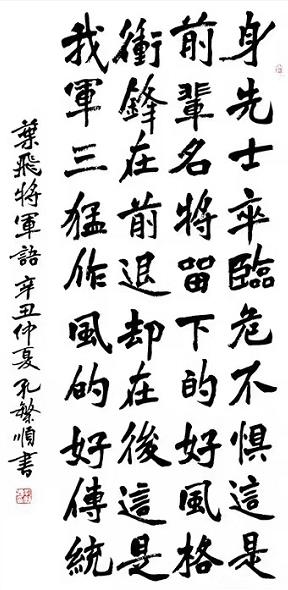 身先士卒臨危不惧這是
前輩名將留下的好風格
衝鋒在前退却在後這是
我軍三猛作風的好傳統
葉飛將軍語 辛丑仲夏 孔繁順書